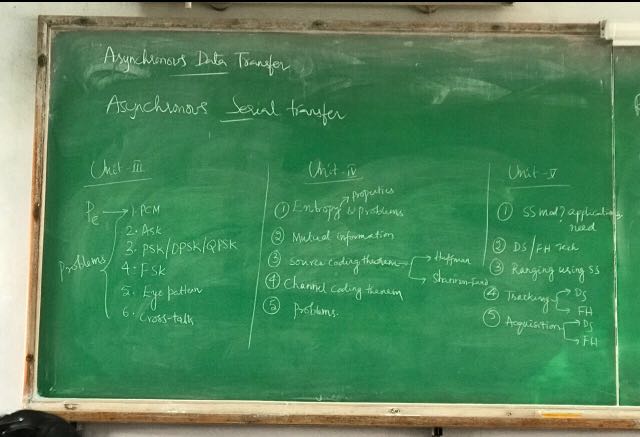 Asynchronous Data Transfer
Asynchronous Serial transfer
Unit-III
Pe → 1. PCM
2. Ask
3. PSK/DPSK/QPSK
4. FSK
5. Eye pattern
6. Cross-talk
Problems
Unit-IV
properties
① Entropy & problems
② Mutual information
③ Source coding theorem
Huffman
Shannon-Fano
④ Channel coding theorem
⑤ Problems.
Unit-V
① SS mod? applications,
need
② DS/FH Tech
③ Ranging using SS
④ Tracking → DS
→ FH
⑤ Acquisition → DS
→ FH